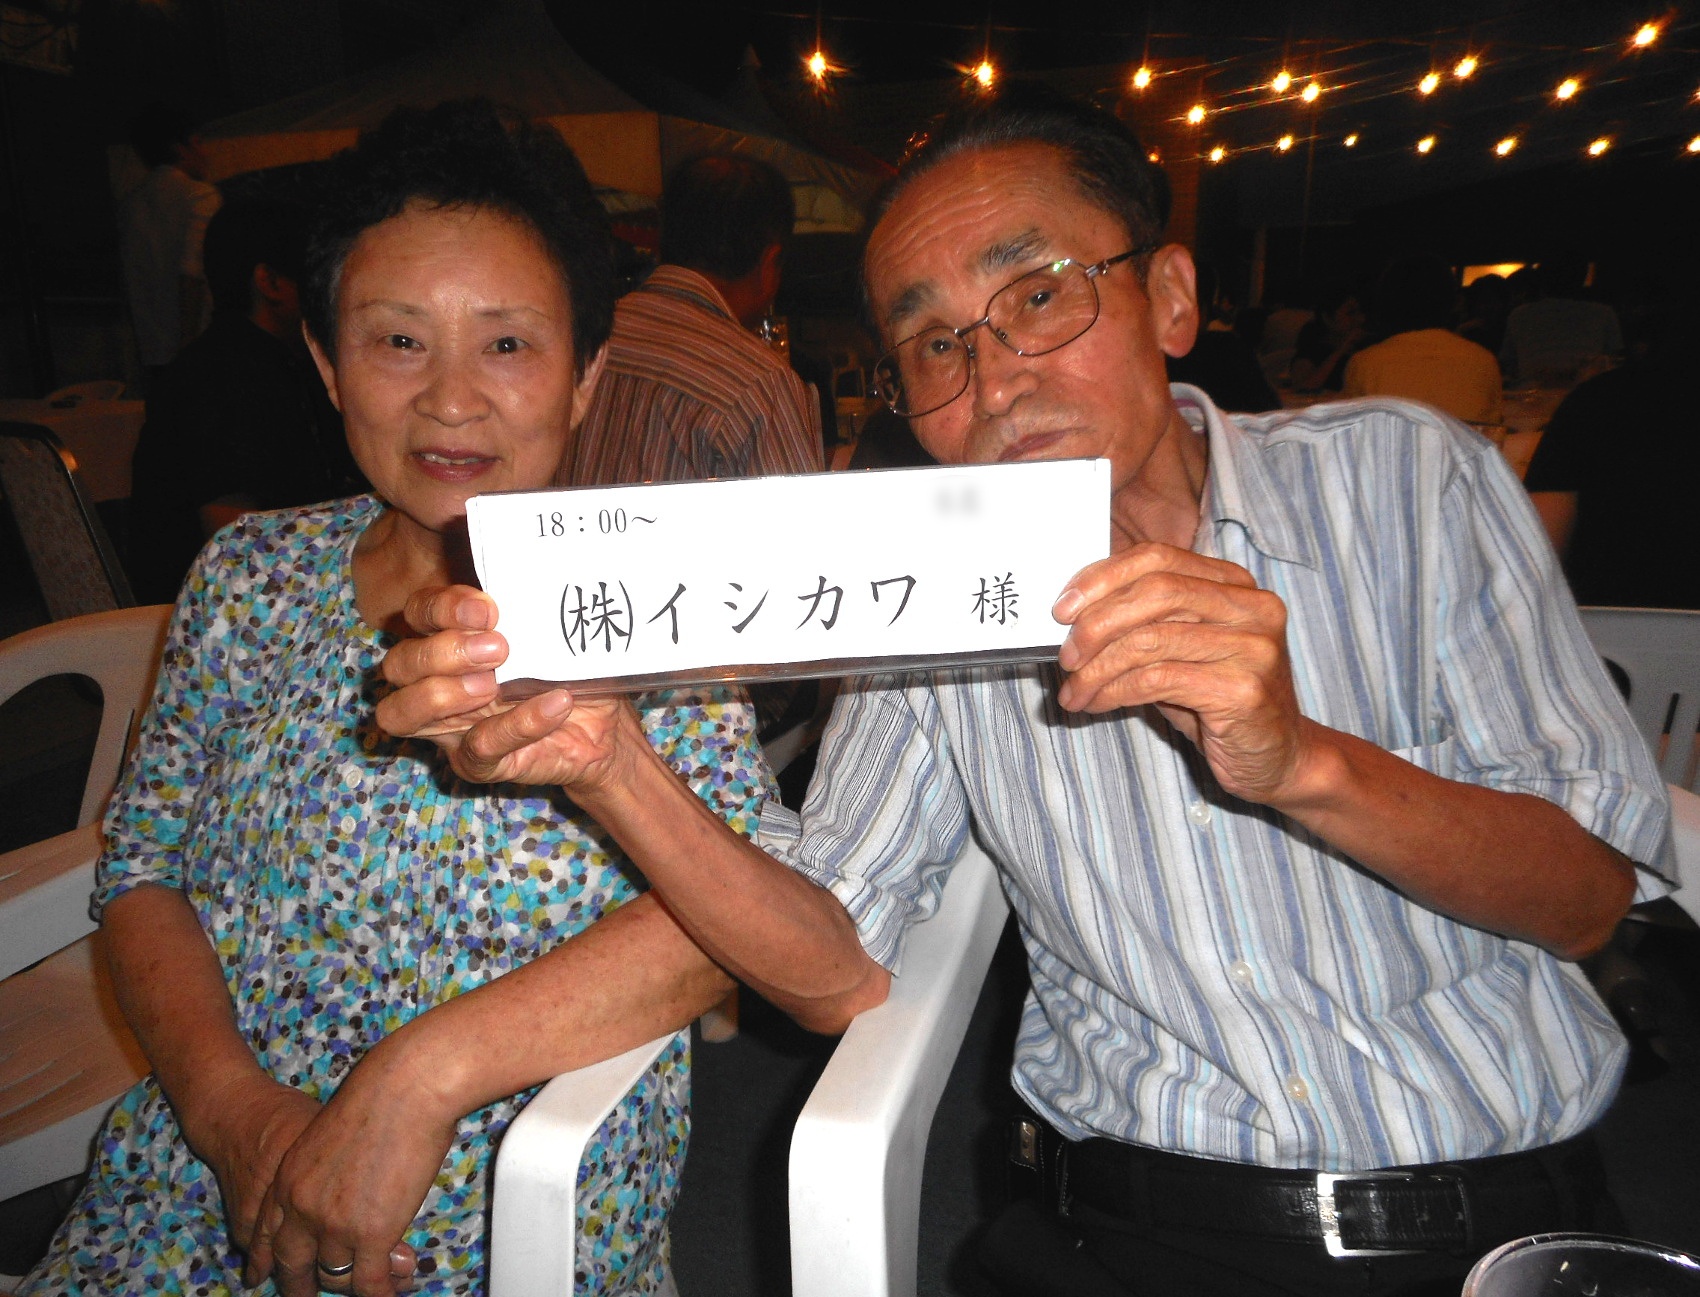 18:00～
㈱イシカワ 様